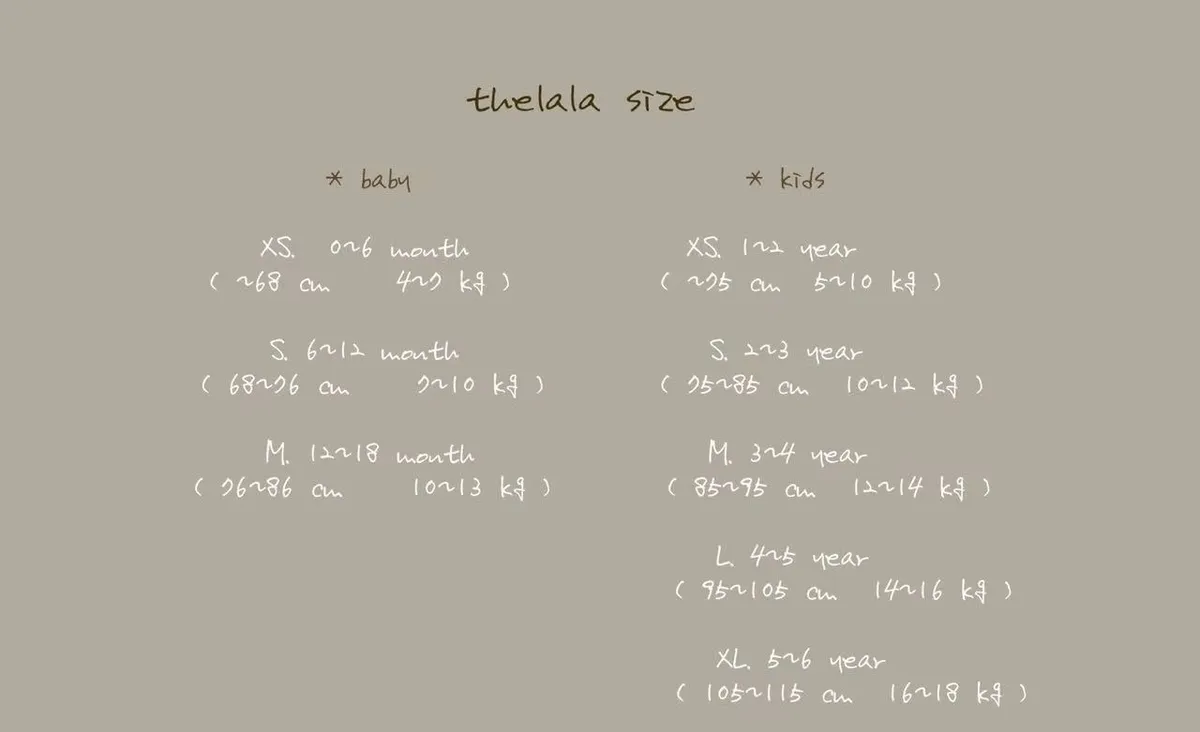 thelala size
* baby
XS. 0~6 month
( ~68 cm 4~7 kg )
S. 6~12 month
( 68~76 cm 7~10 kg )
M. 12~18 month
( 76~86 cm 10~13 kg )
* kids
XS. 1~2 year
( ~75 cm 5~10 kg )
S. 2~3 year
( 75~85 cm 10~12 kg )
M. 3~4 year
( 85~95 cm 12~14 kg )
L. 4~5 year
( 95~105 cm 14~16 kg )
XL. 5~6 year
( 105~115 cm 16~18 kg )